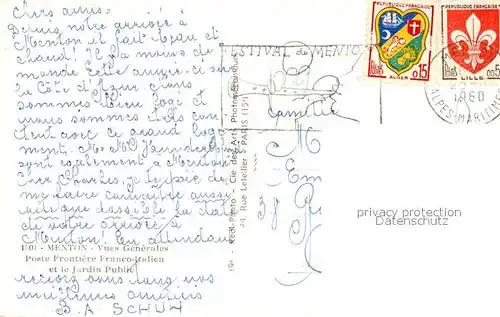 Chers amis.
Depuis notre arrivée à
Menton il fait beau et
chaud! Il y a moins de
monde cette année-ci sur
la Côte d'Azur. Nous
sommes bien logé et
nous sommes très con-
tent avec ce grand loge
ment. M. MC
sont également à Menton.
Cher Charles, je te prie de
me faire connaître aussi
vite que possible la date
de votre arrivée à
Menton! En attendant
1201 - MENTON - Vues Générales
Poste Frontière Franco-Italien
et le Jardin Public
recevez vous tous nos
meilleures amitiés
B.A SCHUY
191 - Real-Photo - Cie des Arts Photomécaniques
44, Rue Letellier - PARIS (15e)
FESTIVAL de MENTON
Famille
M
Em
38 R
REPUBLIQUE FRANÇAISE
POSTES
ALGER 0,15
REPUBLIQUE FRANÇAISE
POSTES
LILLE 0,05
1960
ALPES-MARITIMES
privacy protection
Datenschutz